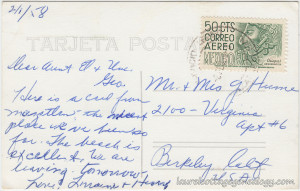 2/1/58
TARJETA POSTAL
50 CTS
CORREO
AEREO
MEXICO
Dear Aunt & Unc.
Geo.
Here is a card from
Mazatlan - the nicest
place we've been so
far. The beach is
excellent, we are
leaving tomorrow!
Love, Lorraine &
Mr. & Mrs G Hume
2100 - Virginia
Apt #6
Berkeley, Calif
U.S.A.
laurelcottagegenealogy.com